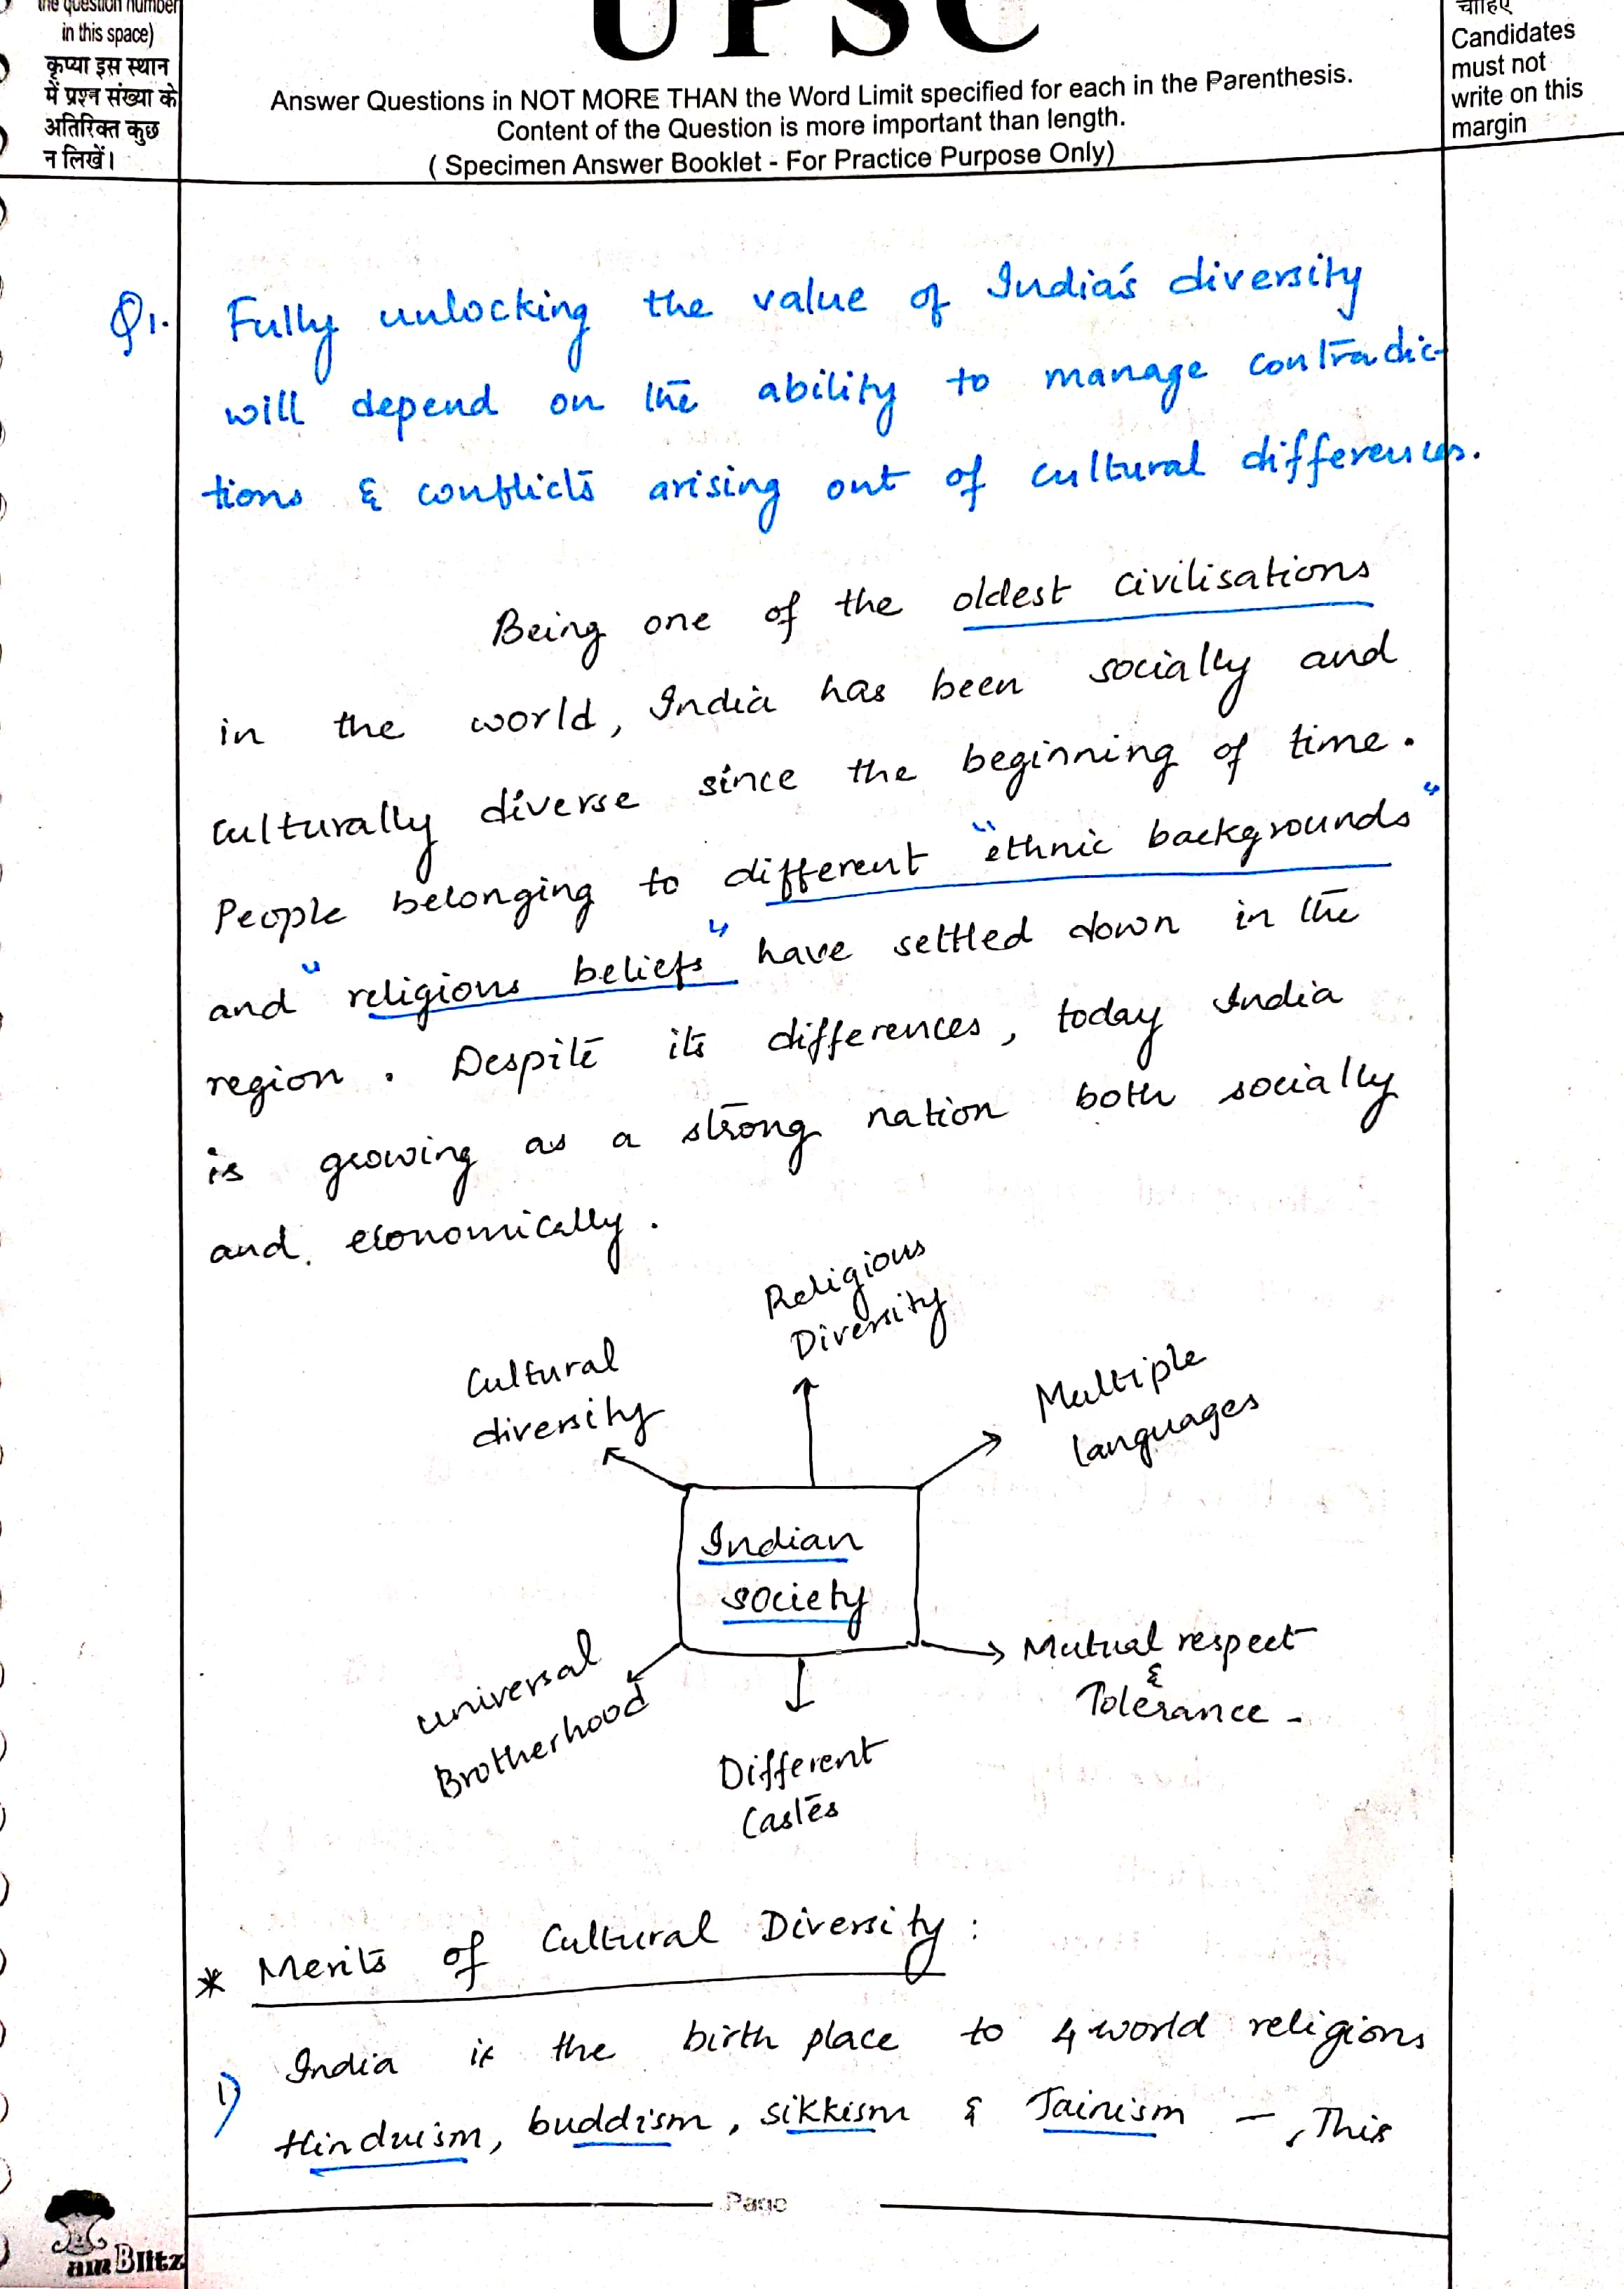 the question number
in this space)
कृप्या इस स्थान
में प्रश्न संख्या के
अतिरिक्त कुछ
न लिखें।
UPSC
Answer Questions in NOT MORE THAN the Word Limit specified for each in the Parenthesis.
Content of the Question is more important than length.
( Specimen Answer Booklet - For Practice Purpose Only)
चाहिए
Candidates
must not
write on this
margin
Q1. Fully unlocking the value of India's diversity
will depend on the ability to manage contradic-
tions & conflicts arising out of cultural differences.
Being one of the oldest civilisations
in the world, India has been socially and
culturally diverse since the beginning of time.
People belonging to different "ethnic backgrounds"
and "religious beliefs" have settled down in the
region. Despite its differences, today India
is growing as a strong nation both socially
and economically.
Religious
Diversity
Cultural
diversity
Multiple
languages
Indian
society
universal
Brotherhood
Mutual respect
&
Tolerance -
Different
Castes
* Merits of Cultural Diversity:
1) India is the birth place to 4 world religions
Hinduism, buddism, sikkism & Jainism - , This
Page
Blitz